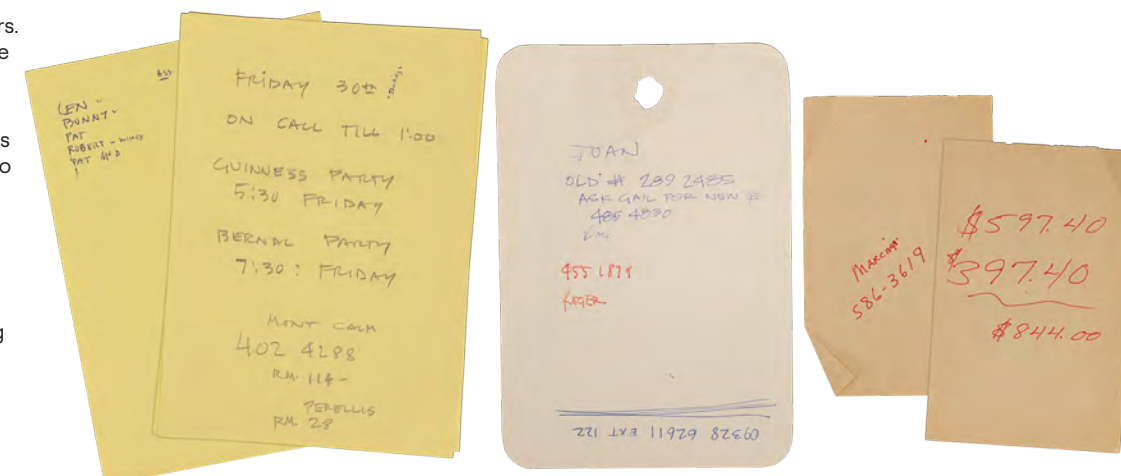 rs.
e
s
o
g
LEN -
BUNNY -
PAT
ROBERT -
PAT McD
FRIDAY 30th
ON CALL TILL 1:00
GUINNESS PARTY
5:30 FRIDAY
BERNAL PARTY
7:30: FRIDAY
MONT CALM
402 4288
RM. 114-
PERELLIS
RM. 28
JOAN
OLD # 289 2485
ASK GAIL FOR NEW #
485 4830
455 1879
ROGER
09328 62611 EXT 122
MARCIA
586-3619
$597.40
$397.40
$844.00